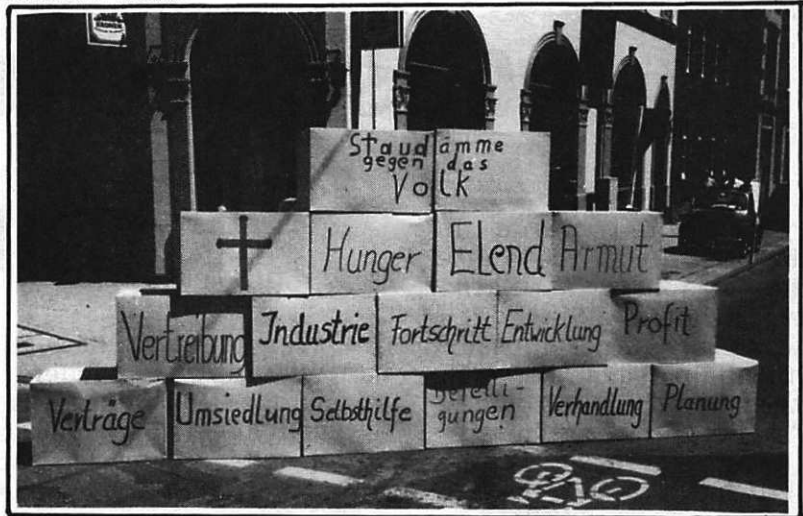 Staudämme
gegen das
Volk
Hunger Elend Armut
Vertreibung Industrie Fortschritt Entwicklung Profit
Verträge Umsiedlung Selbsthilfe Beteili-
gungen Verhandlung Planung